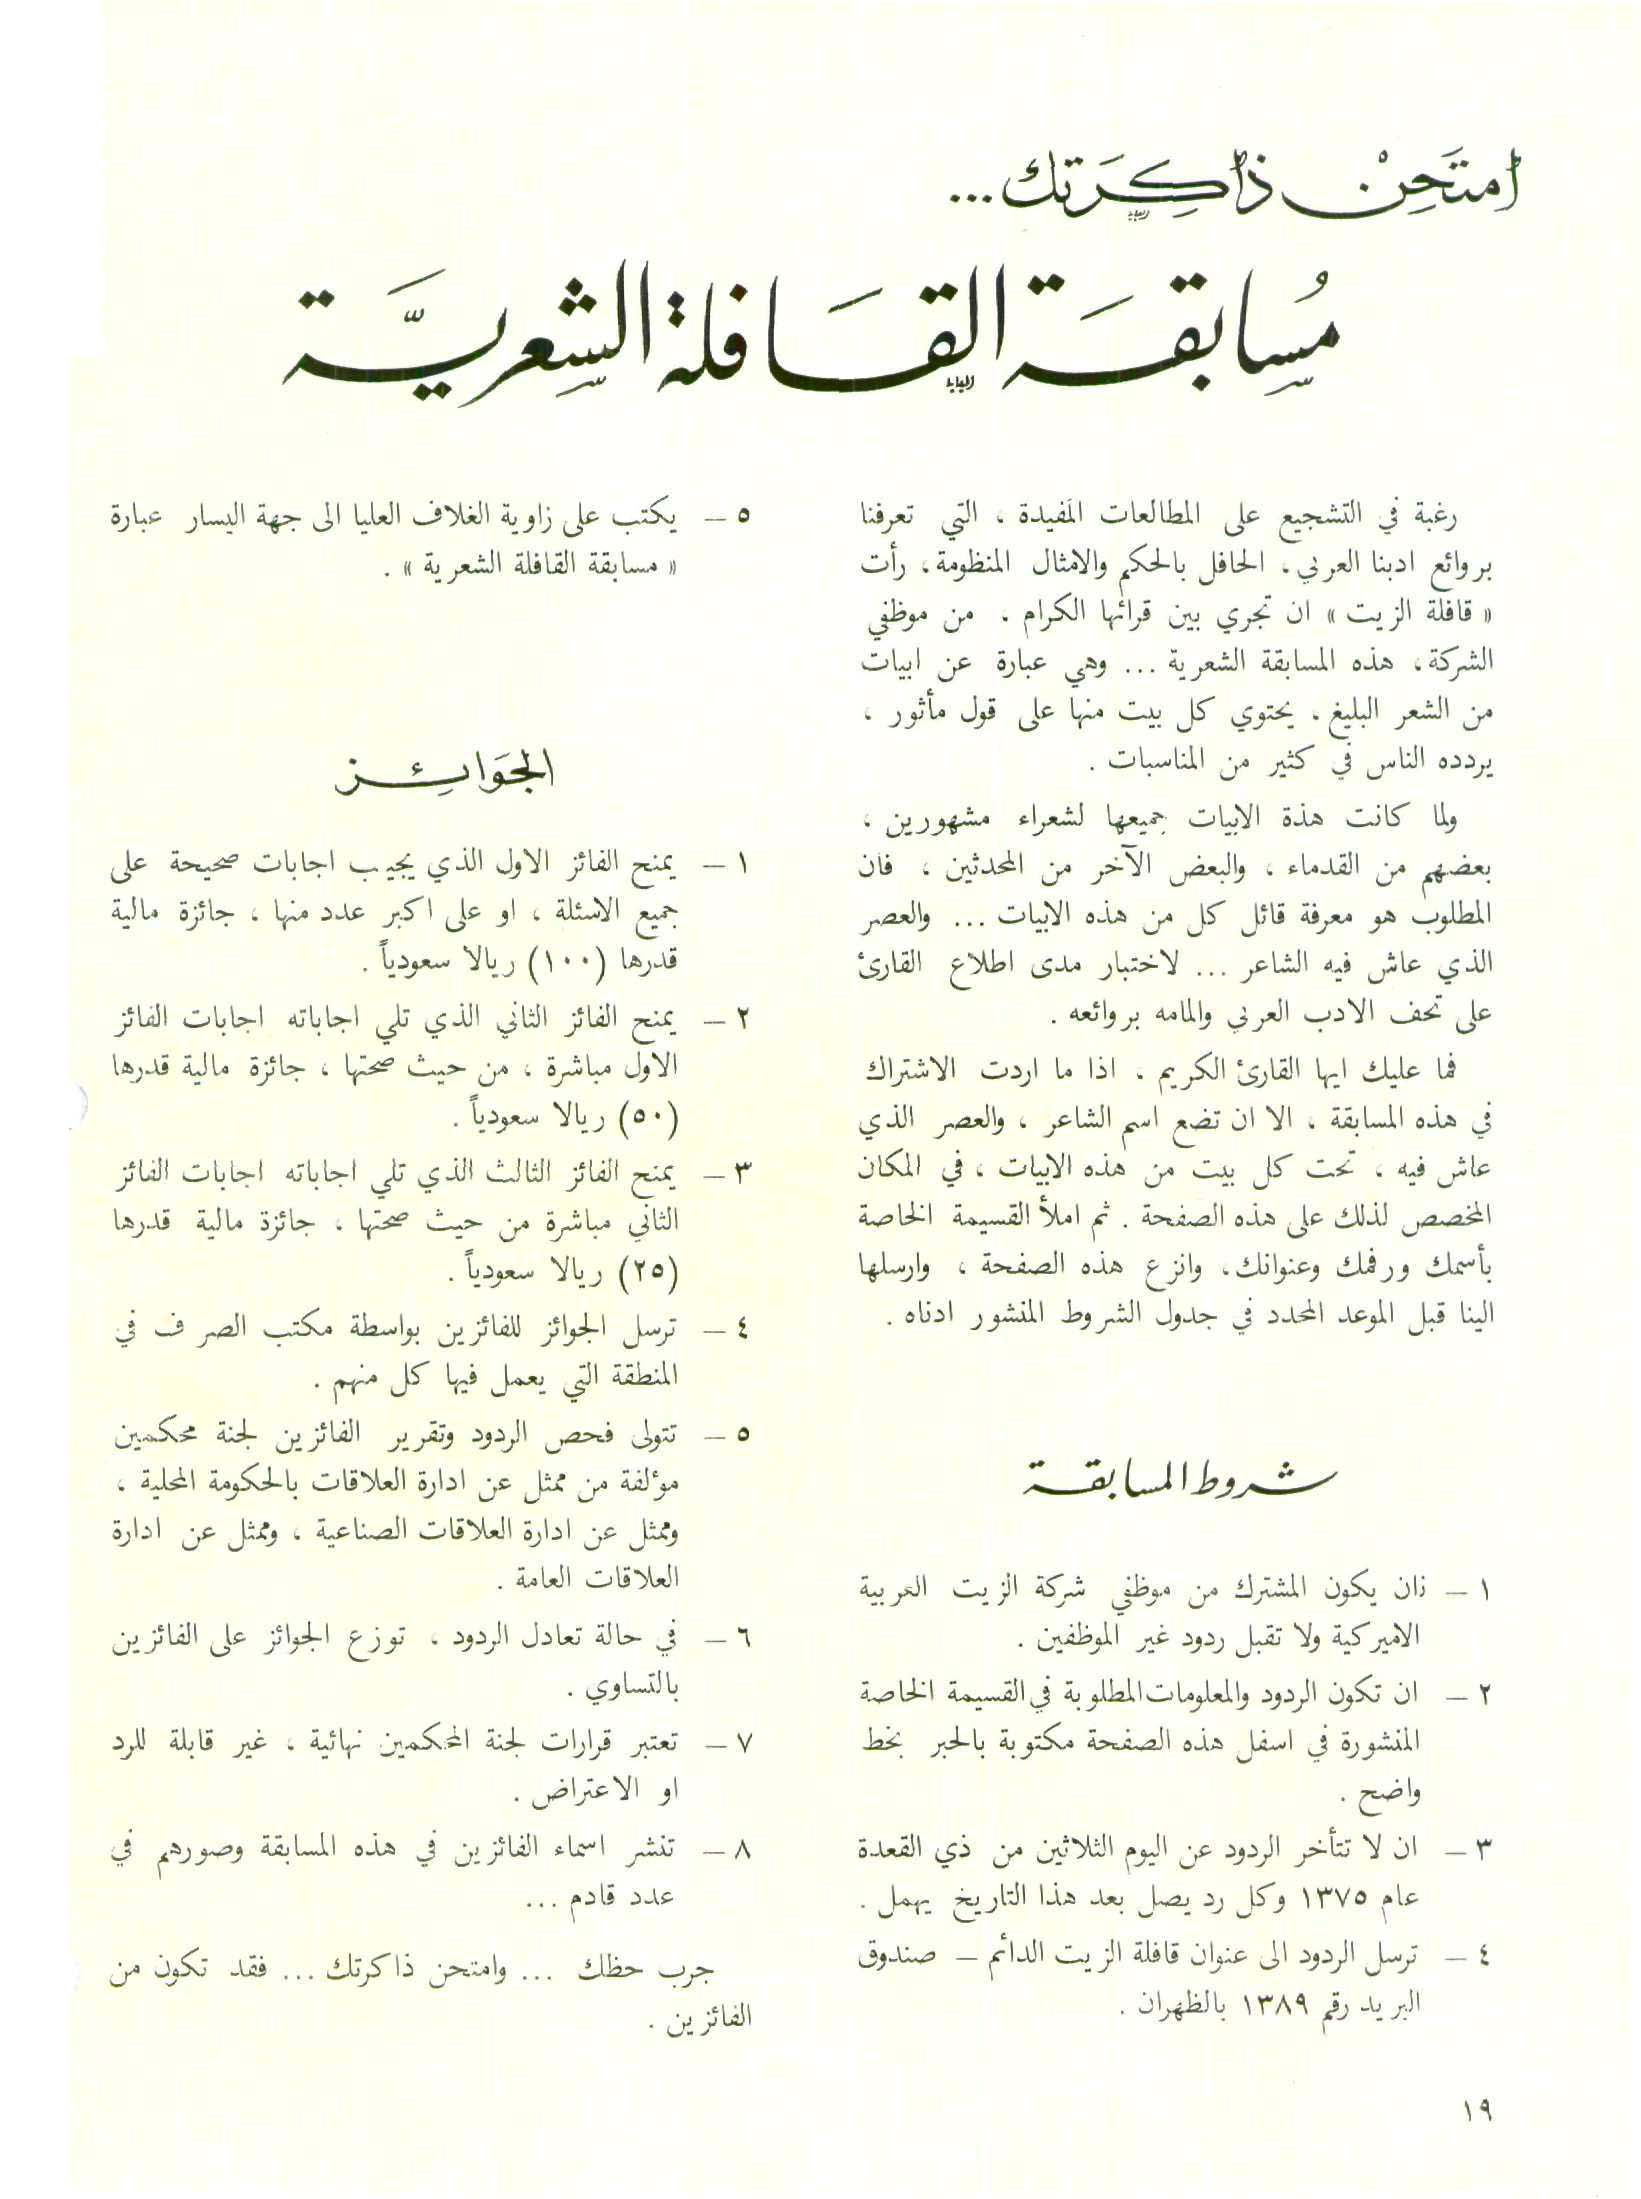 امتَحِنْ ذاكِرَتك...
مُسابقَة القَافلة الشِعريَّة
رغبة في التشجيع على المطالعات المفيدة ، التي تعرفنا
بروائع ادبنا العربي ، الحافل بالحكم والامثال المنظومة ، رأت
« قافلة الزيت » ان تجري بين قرائها الكرام ، من موظفي
الشركة ، هذه المسابقة الشعرية ... وهي عبارة عن ابيات
من الشعر البليغ ، يحتوي كل بيت منها على قول مأثور ،
يردده الناس في كثير من المناسبات .
ولما كانت هذة الابيات جميعها لشعراء مشهورين ،
بعضهم من القدماء ، والبعض الآخر من المحدثين ، فان
المطلوب هو معرفة قائل كل من هذه الابيات ... والعصر
الذي عاش فيه الشاعر ... لاختبار مدى اطلاع القارئ
على تحف الادب العربي والمامه بروائعه .
فما عليك ايها القارئ الكريم ، اذا ما اردت الاشتراك
في هذه المسابقة ، الا ان تضع اسم الشاعر ، والعصر الذي
عاش فيه ، تحت كل بيت من هذه الابيات ، في المكان
المخصص لذلك على هذه الصفحة . ثم املأ القسيمة الخاصة
بأسمك ورقمك وعنوانك ، وانزع هذه الصفحة ، وارسلها
الينا قبل الموعد المحدد في جدول الشروط المنشور ادناه .
شروط المسابقة
١ – ان يكون المشترك من موظفي شركة الزيت العربية
الاميركية ولا تقبل ردود غير الموظفين .
٢ – ان تكون الردود والمعلومات المطلوبة في القسيمة الخاصة
المنشورة في اسفل هذه الصفحة مكتوبة بالحبر بخط
واضح .
٣ – ان لا تتأخر الردود عن اليوم الثلاثين من ذي القعدة
عام ١٣٧٥ وكل رد يصل بعد هذا التاريخ يهمل .
٤ – ترسل الردود الى عنوان قافلة الزيت الدائم – صندوق
البريد رقم ١٣٨٩ بالظهران .
٥ – يكتب على زاوية الغلاف العليا الى جهة اليسار عبارة
« مسابقة القافلة الشعرية » .
الجوائز
١ – يمنح الفائز الاول الذي يجيب اجابات صحيحة على
جميع الاسئلة ، او على اكبر عدد منها ، جائزة مالية
قدرها (١٠٠) ريالا سعودياً .
٢ – يمنح الفائز الثاني الذي تلي اجاباته اجابات الفائز
الاول مباشرة ، من حيث صحتها ، جائزة مالية قدرها
(٥٠) ريالا سعودياً .
٣ – يمنح الفائز الثالث الذي تلي اجاباته اجابات الفائز
الثاني مباشرة من حيث صحتها ، جائزة مالية قدرها
(٢٥) ريالا سعودياً .
٤ – ترسل الجوائز للفائزين بواسطة مكتب الصرف في
المنطقة التي يعمل فيها كل منهم .
٥ – تتولى فحص الردود وتقرير الفائزين لجنة محكمين
مؤلفة من ممثل عن ادارة العلاقات بالحكومة المحلية ،
وممثل عن ادارة العلاقات الصناعية ، وممثل عن ادارة
العلاقات العامة .
٦ – في حالة تعادل الردود ، توزع الجوائز على الفائزين
بالتساوي .
٧ – تعتبر قرارات لجنة المحكمين نهائية ، غير قابلة للرد
او الاعتراض .
٨ – تنشر اسماء الفائزين في هذه المسابقة وصورهم في
عدد قادم ...
جرب حظك ... وامتحن ذاكرتك ... فقد تكون من
الفائزين .
١٩